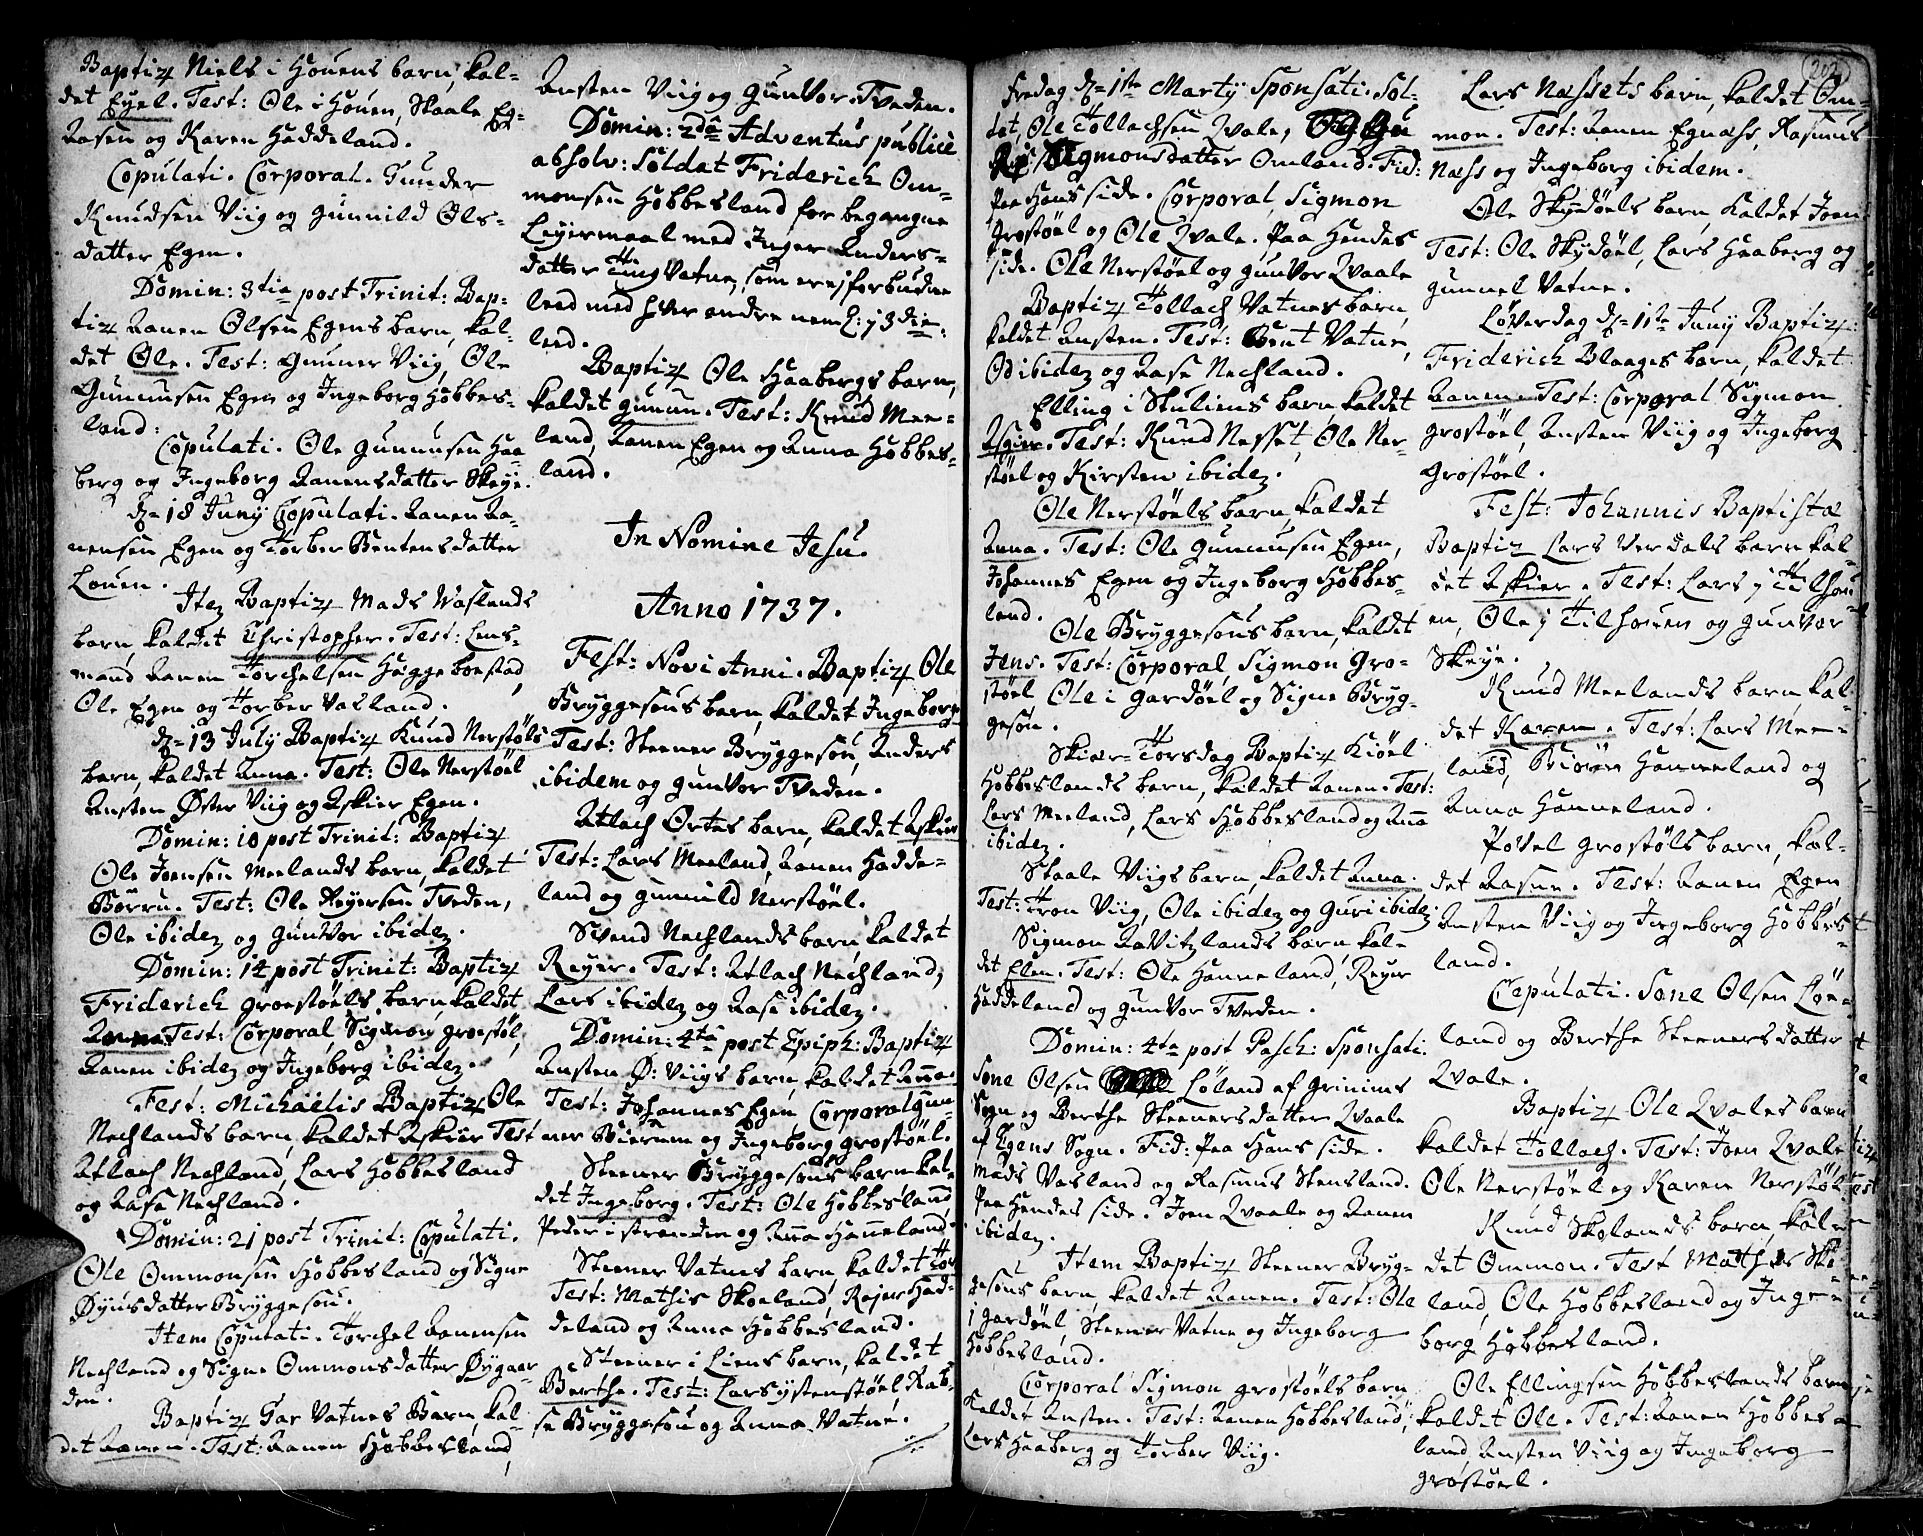 Baptiz Niels i Houens barn, kal-
det Eyel. Test: Ole i Houen, Staale Eg-
Aasen og Karen Haddeland.
Copulati. Corporal. Gunder
Knudsen Viig og Gunnild Ols-
datter Egen.
Domin: 3tia post Trinit: Bap-
tiz Aanen Olsen Egens barn, kal-
det Ole. Test: Gunner Viig, Ole
Gunnusen Egen og Ingeborg Hobbes-
land:
Copulati. Ole Gunnusen Haa-
berg og Ingeborg Aanensdatter Skeye.
d. 18 Juny Copulati. Aanen Aa-
nensen Egen og Torber Bentensdatter
Louen.
Item Baptiz Mads Waslands
barn, kaldet Christopher. Test: Lens-
mand Aanen Torchelsen Huggeboestad,
Ole Egen og Torber Vasland.
d. 13 July Baptiz Knud Nerstøls
barn, kaldet Anna. Test: Ole Nerstøel
Ansten Øster Viig og Askier Egen.
Domin: 10 post Trinit: Baptiz
Ole Joensen Meelands barn, kaldet
Børru. Test: Ole Reyersen Tveden,
Ole ibidem og Gunvor ibidem.
Domin: 14 post Trinit: Baptiz
Friderich Groestøels barn, kaldet
Test: Corporal, Sigmon Groestøl,
Aanen ibidem og Ingeborg ibidem.
Fest: Michaelis Baptiz Ole
Nechlands barn, kaldet Askier Test
Atlach Nechland, Lars Hobbesland
og Aase Nechland.
Domin: 21 post Trinit: Copulati.
Ole Ommonsen Hobbesland og Signe
Øynsdatter Bryggesou.
Item Coputati. Torchel Aanensen
Nechland og Signe Ommonsdatter Øygaar-
den.
Baptiz Tar Vatnes Barn, kal-
det Aanen. Test: Aanen Hobbesland,
Ansten Viig og Gunvor Tveden.
Domin: 2da Adventus publice
absolv: Soldat Friderich Om-
monsen Hobbesland for begangne
Leyermaal med Inger Anders-
datter Tingvatne, som ere forbudne
leed med hver andre neml: j 3die
leed.
Baptiz Ole Haabergs barn,
kaldet Gunun. Test: Knud Mee-
land, Aanen Egen og Anna Hobbes-
land.
In Nomine Jesu.
Anno 1737.
Fest: Novi Anni. Baptiz Ole
Bryggesous barn, kaldet Ingeborg
Test: Steener Bryggesou, Anders
ibidem og Gunvor Tveden.
Atlach Ortes barn, kaldet Askier
Test: Lars Meeland, Aanen Hadde-
land og Gunnild Nerstøel.
Svend Nechlands barn kaldet
Reyer. Test: Atlach Nechland,
Lars ibidem og Aase ibidem.
Domin: 4ta post Epiph: Baptiz
Ansten Ø: Viigs barn, kaldet Anna
Test: Johannes Egen, Corporal Gun-
ner og Ingeborg Grostøel.
Steener Bryggesous barn kal-
det Ingeborg. Test: Ole Hobbesland
Peder i stranden og Anna Hanneland.
Steener Vatnes barn, kaldet Tor
Test: Mathis Skoeland, Rejer Had-
deland og Anna Hobbesland.
Steener i Liens barn, kaldet
Berthe. Test: Lars Ystenstøel, Rab-
se Bryggesou og Anna Vatne.
Fredag d. 1ste Marty Sponsati. Sol-
dat, Ole Tollachsen Qvale,
Sigmonsdatter Omland. Fid:
Paa Hans side. Corporal Sigmon
Grostøel og Ole Qvale. Paa Hendes
side. Ole Nerstøel og Gunvor Qvaale
Baptiz Tollach Vatnes barn,
kaldet Ansten. Test: Bent Vatne,
Od ibidem og Aase Nechland.
Elling i Stuliens barn kaldet
Asgier. Test: Knud Nesset, Ole Ner-
støel og Kirsten ibidem.
Ole Nerstøels barn, kaldet
Anna. Test: Ole Gunnusen Egen,
Johannes Egen og Ingeborg Hobbes-
land.
Ole Bryggesous barn, kaldet
Jens. Test: Corporal, Sigmon Gro-
støel Ole i Gardøel og Signe Bryg-
gesou.
Skiær-Torsdag Baptiz Kiøel
Hobbeslands barn, kaldet Aanen. Test:
Lars Meeland, Lars Hobbesland og Anna
ibidem.
Staale Viigs barn, kaldet Anna.
Test: Tron Viig, Ole ibidem og Guri ibidem
Sigmon Aavitzlands barn kal-
det Elen. Test: Ole Hanneland, Reyer
Haddeland og Gunvor Tveden.
Domin: 4ta post Pasch: Sponsati.
Sone Olsen Løland af Grinims
Sogn og Berthe Steenersdatter Qvaale
af Egens Sogn. Fid: Paa Hans side.
Mads Vasland og Rasmus Stensland.
Paa Hendes side. Joen Qvaale og Aanen
ibidem.
Item Baptiz Steener Bryg-
gesous barn, kaldet Aanen. Test: Ole
i Gardøel, Steener Vatne og Ingeborg
Hobbesland.
Corporal Sigmon Grostøels barn
kaldet Ansten. Test: Aanen Hobbesland,
Lars Haaberg og Torber Viig.
202
Lars Næssets barn, kaldet Om-
mon. Test: Aanen Egnæss, Rasmus
Næss og Ingeborg ibidem.
Ole Skydøels barn, kaldet Joen
Test: Ole Skydøel, Lars Haaberg og
Gunnel Vatne.
Løverdag d. 11te Juny Baptiz:
Friderich Blaages barn, kaldet
Aanen. Test: Corporal Sigmon
Grostøel, Ansten Viig og Ingeborg
Grostøel.
Fest: Johannis Baptistæ
Baptiz Lars Verdals barn kal-
det Askier. Test: Lars j Tilhou-
en, Ole j Tilhouen og Gunvor
Skeye.
Knud Meelands barn kal-
det Karen. Test: Lars Mee-
land, Biørn Hanneland og
Anna Hanneland.
Povel Grostøls barn, kal-
det Aasne. Test: Aanen Egen,
Ansten Viig og Ingeborg Hobbes-
land.
Copulati. Sone Olsen Løe-
land og Berthe Steenersdatter
Qvale.
Baptiz Ole Qvales barn
kaldet Tollach. Test: Joen Qvale
Ole Nerstøel og Karen Nerstøl
Knud Skolands barn, kal-
det Ommon. Test Mathis Sko-
land, Ole Hobbesland og Inge-
borg Hobbesland.
Ole Ellingsen Hobbeslands barn
kaldet Ole. Test: Aanen Hobbes-
land, Ansten Viig og Ingeborg
Grostøel.